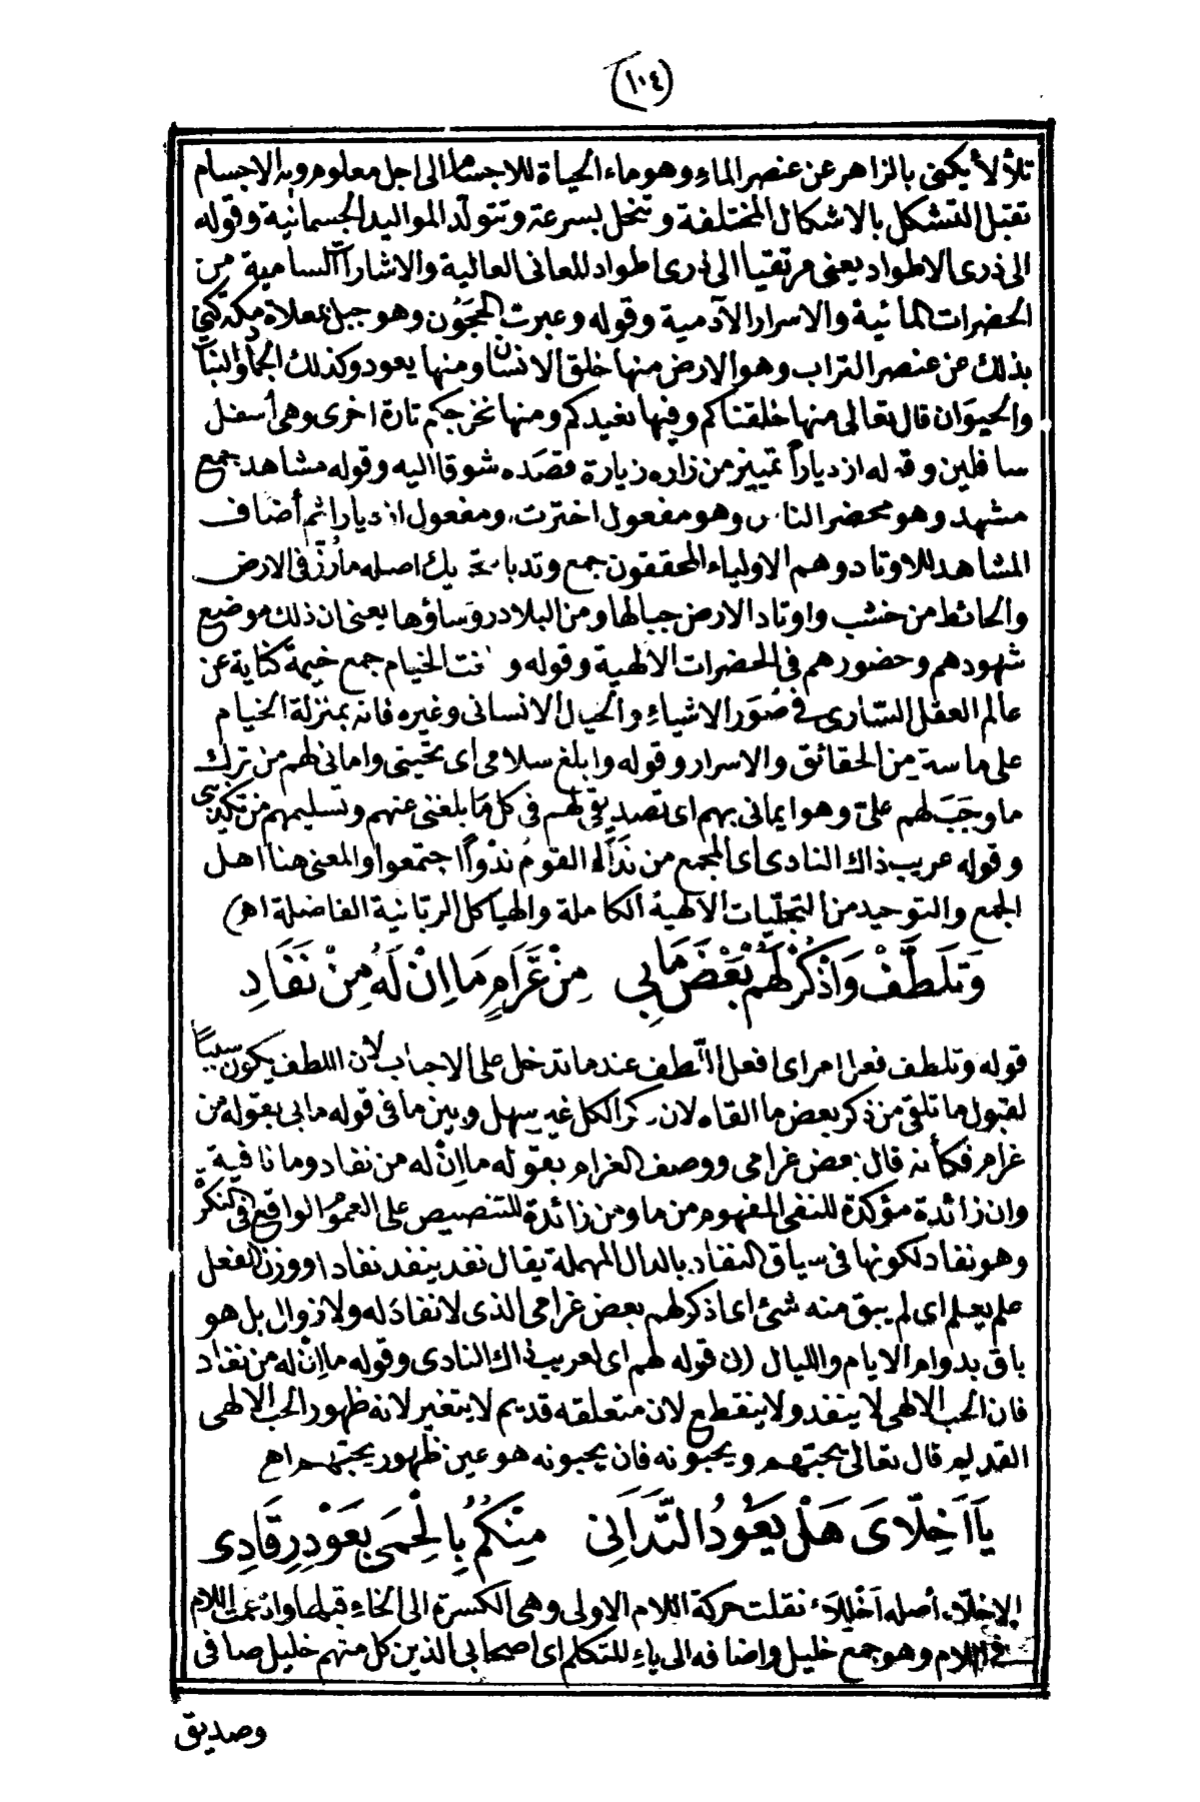 (١٠٤)
تلألأ يكنى بالزاهر عن عنصر الماء وهو ماء الحياة للاجسام الى اجل معلوم وبه الاجسام
تقبل التشكل بالاشكال المختلفة وتنحل بسرعة وتتولد المواليد الجسمانية وقوله
الى ذرى الاطواد يعنى مرتقيا الى ذرى اطواد المعانى العالية والاشارات السامية من
الحضرات المائية والاسرار الآدمية وقوله وعبرت الحجون وهو جبل بمعلاة مكة كنى
بذلك عن عنصر التراب وهو الارض منها خلق الانسان ومنها يعود وكذلك الجماد والنبات
والحيوان قال تعالى منها خلقناكم وفيها نعيدكم ومنها نخرجكم تارة اخرى وهى أسفل
سافلين وقوله ازدياراً تمييز من زاره زيارة قصده شوقا اليه وقوله مشاهد جمع
مشهد وهو محضر الناس وهو مفعول اخترت ومفعول ازديارا ثم أضاف
المشاهد للاوتاد وهم الاولياء المحققون جمع وتد اصله ما رُزّ فى الارض
والحائط من خشب واوتاد الارض جبالها ومن البلاد رؤساؤها يعنى ان ذلك موضع
شهودهم وحضورهم فى الحضرات الالهية وقوله و الخيام جمع خيمة كناية عن
عالم العقل السّارى فى صُوَر الاشياء والخيال الانسانى وغيره فانه بمنزلة الخيام
على من الحقائق والاسرار وقوله وابلغ سلامى اى تحيّتى وامانى لهم من ترك
ما وجَبَ لهم علىّ وهو ايمانى بهم اى تصديقى لهم فى كل مَا بلغنى عنهم وتسليمهم من تكذيبى
وقوله عريب ذاك النادى اى المجمع من نَدَاهُ القومُ نَدْواً اجتمعوا والمعنى هنا اهل
الجمع والتوحيد من التجلّيات الآلهية الكاملة والهياكل الربّانية الفاضلة اهـ)
وَتَلَطَّفْ وَاذْكُرْ لَهُمْ بَعْضَ مَا بِي مِنْ غَرَامٍ مَا اِنْ لَهُ مِنْ نَفَادِ
قوله وتلطف فعل امر اى افعل اللّطف عندما تدخل على الاحباب لان اللطف يكون سبباً
لقبول ما تلقى من ذكر بعض ما القاه لان ذكر الكل غير سهل وبين ما فى قوله ما بى بقوله من
غرام فكأنه قال بعض غرامى ووصف الغرام بقوله ما اِنْ له من نفاد وما نافية
وان زائدة مؤكدة للنفى المفهوم من ما ومن زائدة للتنصيص على العموم الواقع فى النكرة
وهو نفاد لكونها فى سياق النفاد بالدال المهملة يقال نفد ينفد نفادا ووزن الفعل
علم يعلم اى لم يبق منه شئ اى اذكر لهم بعض غرامى الذى لا نفادَ له ولا زوال بل هو
باق بدوام الايام والليال (ن قوله لهم اى لعريب ذاك النادى وقوله ما اِنْ له من نفاد
فان الحب الالهى لا ينفد ولا ينقطع لان متعلقه قديم لا يتغير لانه ظهور الحب الالهى
القديم قال تعالى يحبّهم ويحبّونه فان يحبونه هو عين ظهور يحبّهم اهـ
يَا اَخِلّاىَ هَلْ يَعُودُ التَّدَانِى مِنْكُمُ بِالْحِمَى بِعَوْدِ رِقَادِى
الاخلّاء أصله اَخْلِلَاء نقلت حركة اللام الاولى وهى الكسرة الى الخاء قبلها وادغمت اللام
فى اللام وهو جمع خليل واضافه الى ياء المتكلم اى اصحابى الذين كل منهم خليل صافى
وصديق